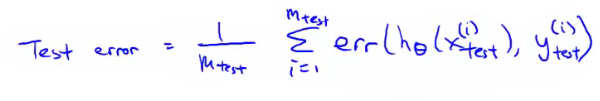 Test error = \frac{1}{m_{test}} \sum_{i=1}^{m_{test}} err(h_θ(x_{test}^{(i)}), y_{test}^{(i)})